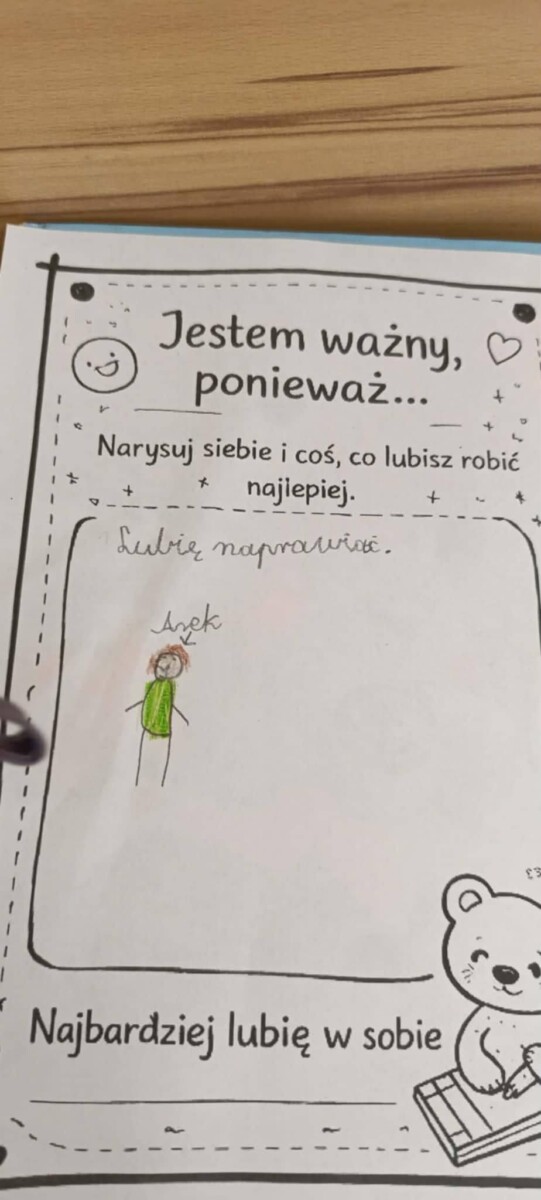 Jestem ważny,
ponieważ...
Narysuj siebie i coś, co lubisz robić
najlepiej.
Lubię naprawiać.
Arek
Najbardziej lubię w sobie